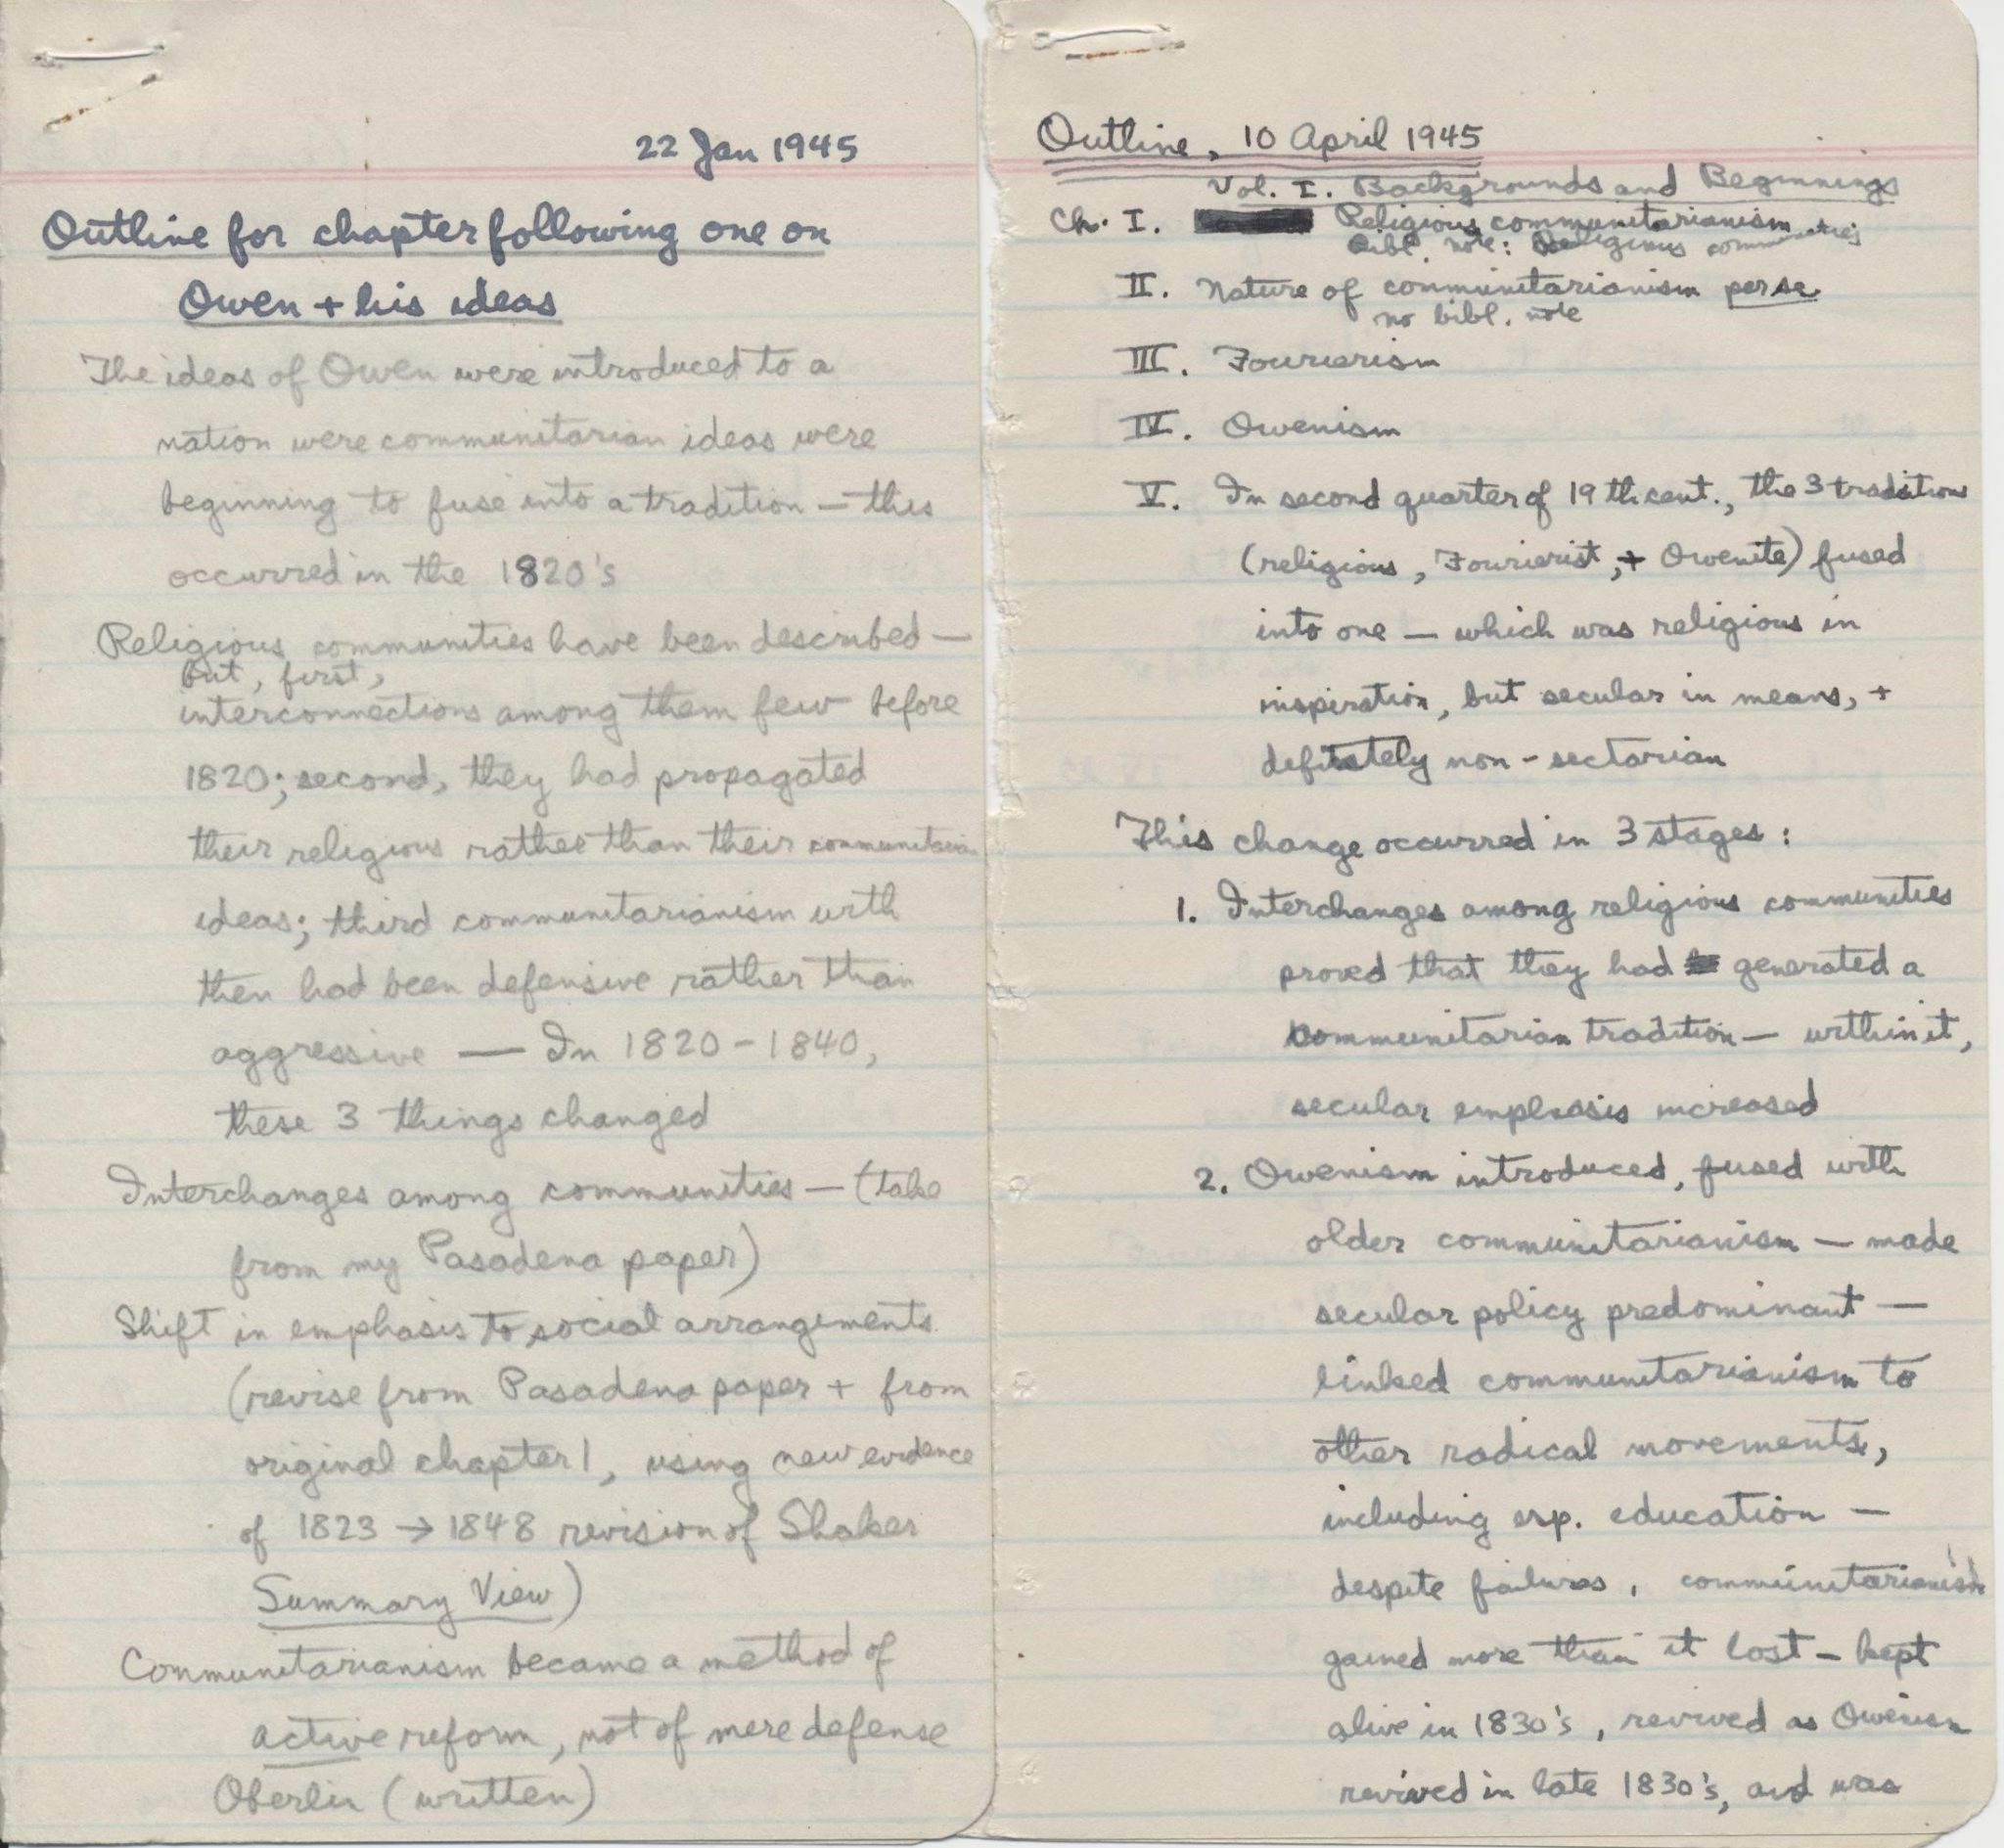 22 Jan 1945
Outline for chapter following one on
Owen + his ideas
The ideas of Owen were introduced to a
nation were communitarian ideas were
beginning to fuse into a tradition — this
occurred in the 1820's
Religious communities have been described —
but, first,
interconnections among them few before
1820; second, they had propagated
their religious rather than their communitarian
ideas; third communitarianism with
then had been defensive rather than
aggressive — In 1820-1840,
these 3 things changed
Interchanges among communities — (take
from my Pasadena paper)
Shift in emphasis to social arrangements
(revise from Pasadena paper + from
original chapter 1, using new evidence
of 1823 → 1848 revision of Shaker
Summary View)
Communitarianism became a method of
active reform, not of mere defense
Oberlin (written)
Outline, 10 April 1945
Vol. I. Backgrounds and Beginnings
Ch. I. Religious communitarianism
Bibl. note: Religious communities
II. Nature of communitarianism per se
no bibl. note
III. Fourierism
IV. Owenism
V. In second quarter of 19th cent., the 3 traditions
(religious, Fourierist, + Owenite) fused
into one — which was religious in
inspiration, but secular in means, +
defintely non-sectarian
This change occurred in 3 stages:
1. Interchanges among religious communities
proved that they had generated a
communitarian tradition — within it,
secular emphasis increased
2. Owenism introduced, fused with
older communitarianism — made
secular policy predominant —
linked communitarianism to
other radical movements,
including esp. education —
despite failures, communitarianism
gained more than it lost — kept
alive in 1830's, revived as Owenism
revived in late 1830's, and was